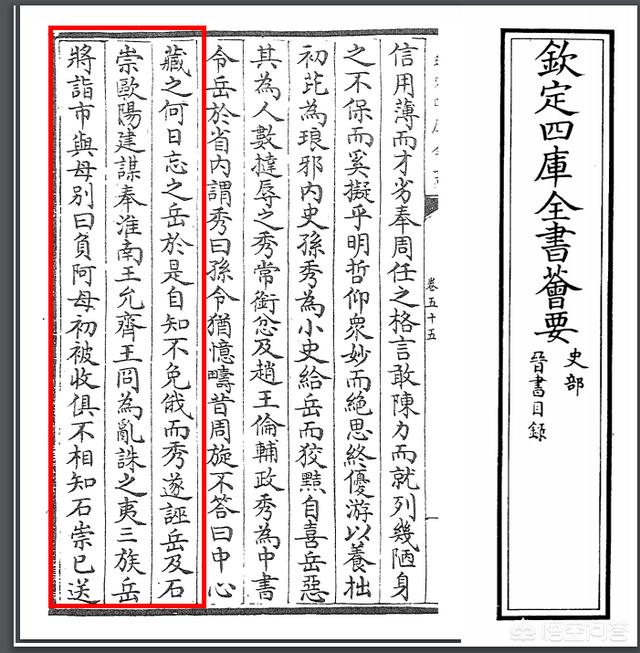 欽定四庫全書薈要
史部
晉書目錄
卷五十五
信用薄而才劣奉周任之格言敢陳力而就列幾陋身
之不保而奚擬乎明哲仰衆妙而絶思終優游以養拙
初芘為琅邪内史孫秀為小史給岳而狡黠自喜岳惡
其為人數撻辱之秀常銜忿及趙王倫輔政秀為中書
令岳於省内謂秀曰孫令猶憶疇昔周旋不答曰中心
藏之何日忘之岳於是自知不免俄而秀遂誣岳及石
崇歐陽建謀奉淮南王允齊王冏為亂誅之夷三族岳
將詣市與母别曰負阿母初被收俱不相知石崇已送
悟空问答